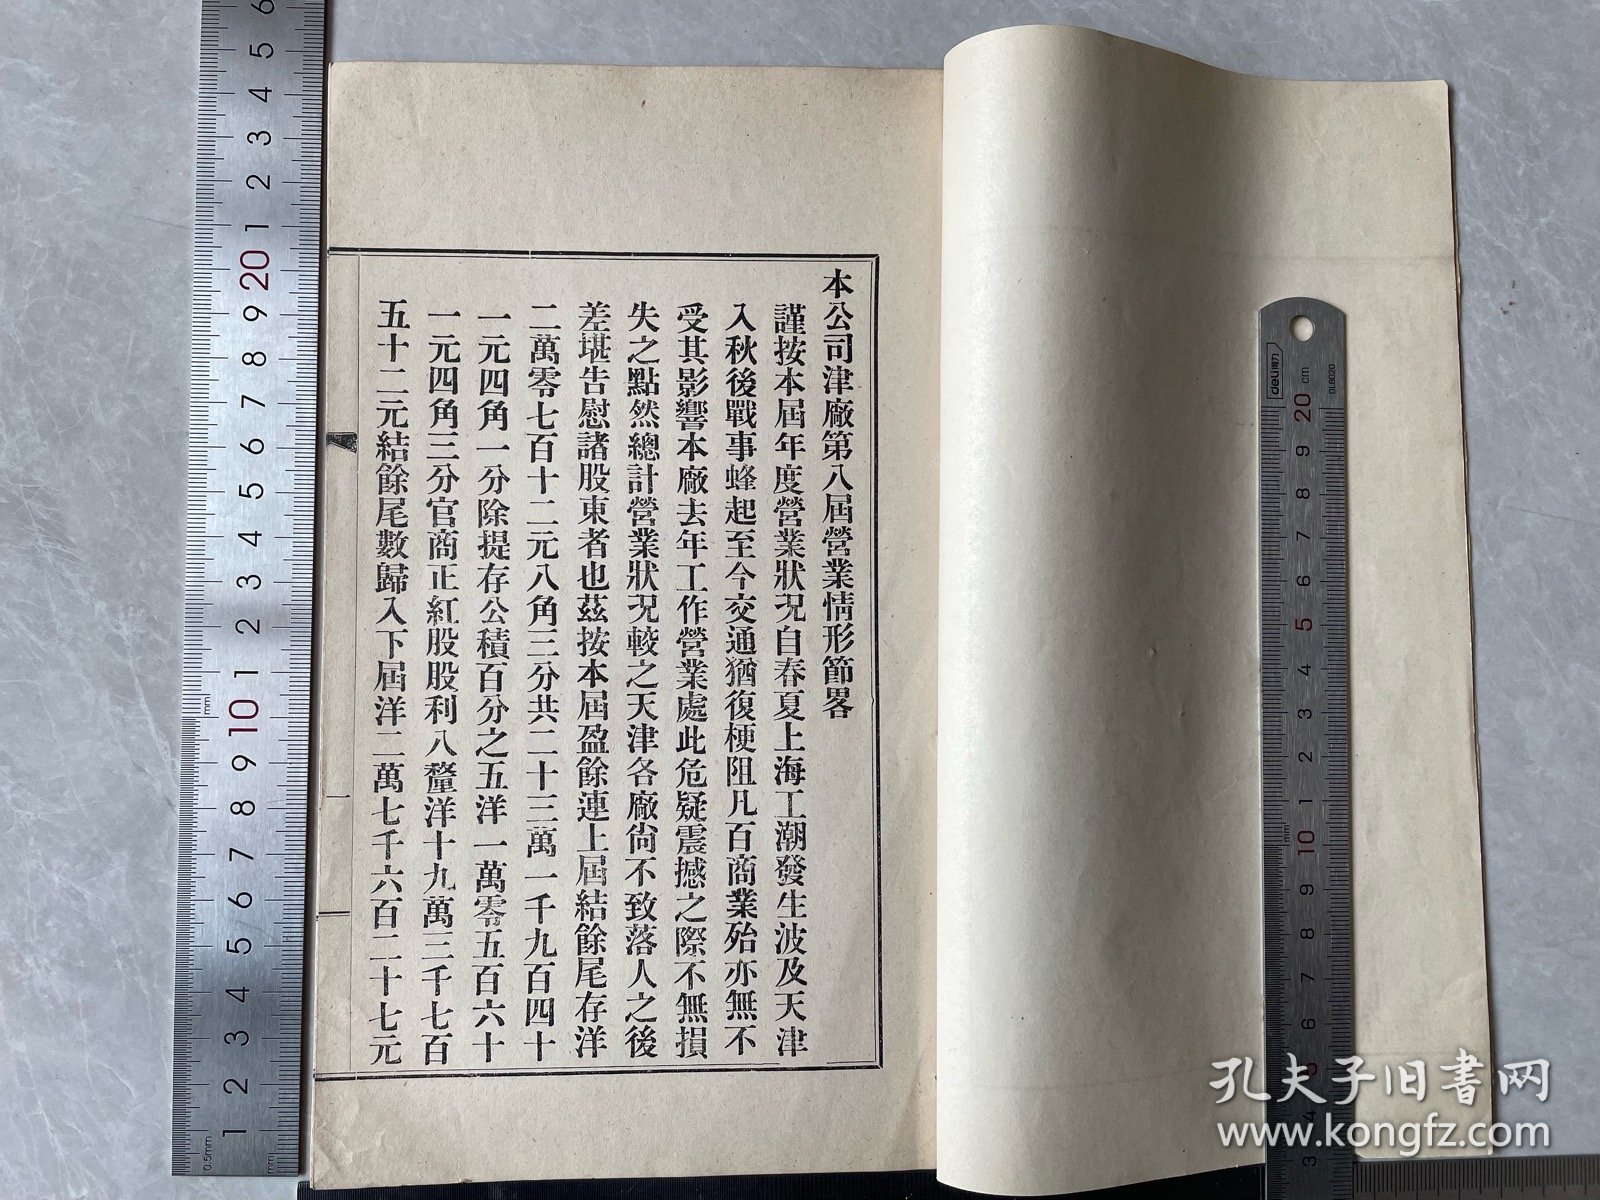 本公司津廠第八屆營業情形節畧
謹按本屆年度營業狀況自春夏上海工潮發生波及天津
入秋後戰事蜂起至今交通猶復梗阻凡百商業殆亦無不
受其影響本廠去年工作營業處此危疑震撼之際不無損
失之點然總計營業狀況較之天津各廠尙不致落人之後
差堪告慰諸股東者也茲按本屆盈餘連上屆結餘尾存洋
二萬零七百十二元八角三分共二十三萬一千九百四十
一元四角一分除提存公積百分之五洋一萬零五百六十
一元四角三分官商正紅股股利八釐洋十九萬三千七百
五十二元結餘尾數歸入下屆洋二萬七千六百二十七元
6 5 4 3 2 1 20 9 8 7 6 5 4 3 2 1 10 9 8 7 6 5 4 3 2 1
mm
0.5mm
mm
deli 得力
cm
20 9 8 7 6 5 4 3 2 1 10 9 8 7 6 5 4 3
mm
孔夫子旧書网
www.kongfz.com